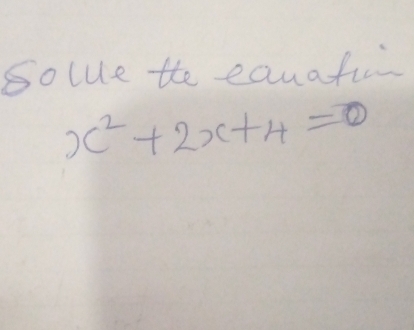 Solve the equation
x² + 2x + 4 = 0